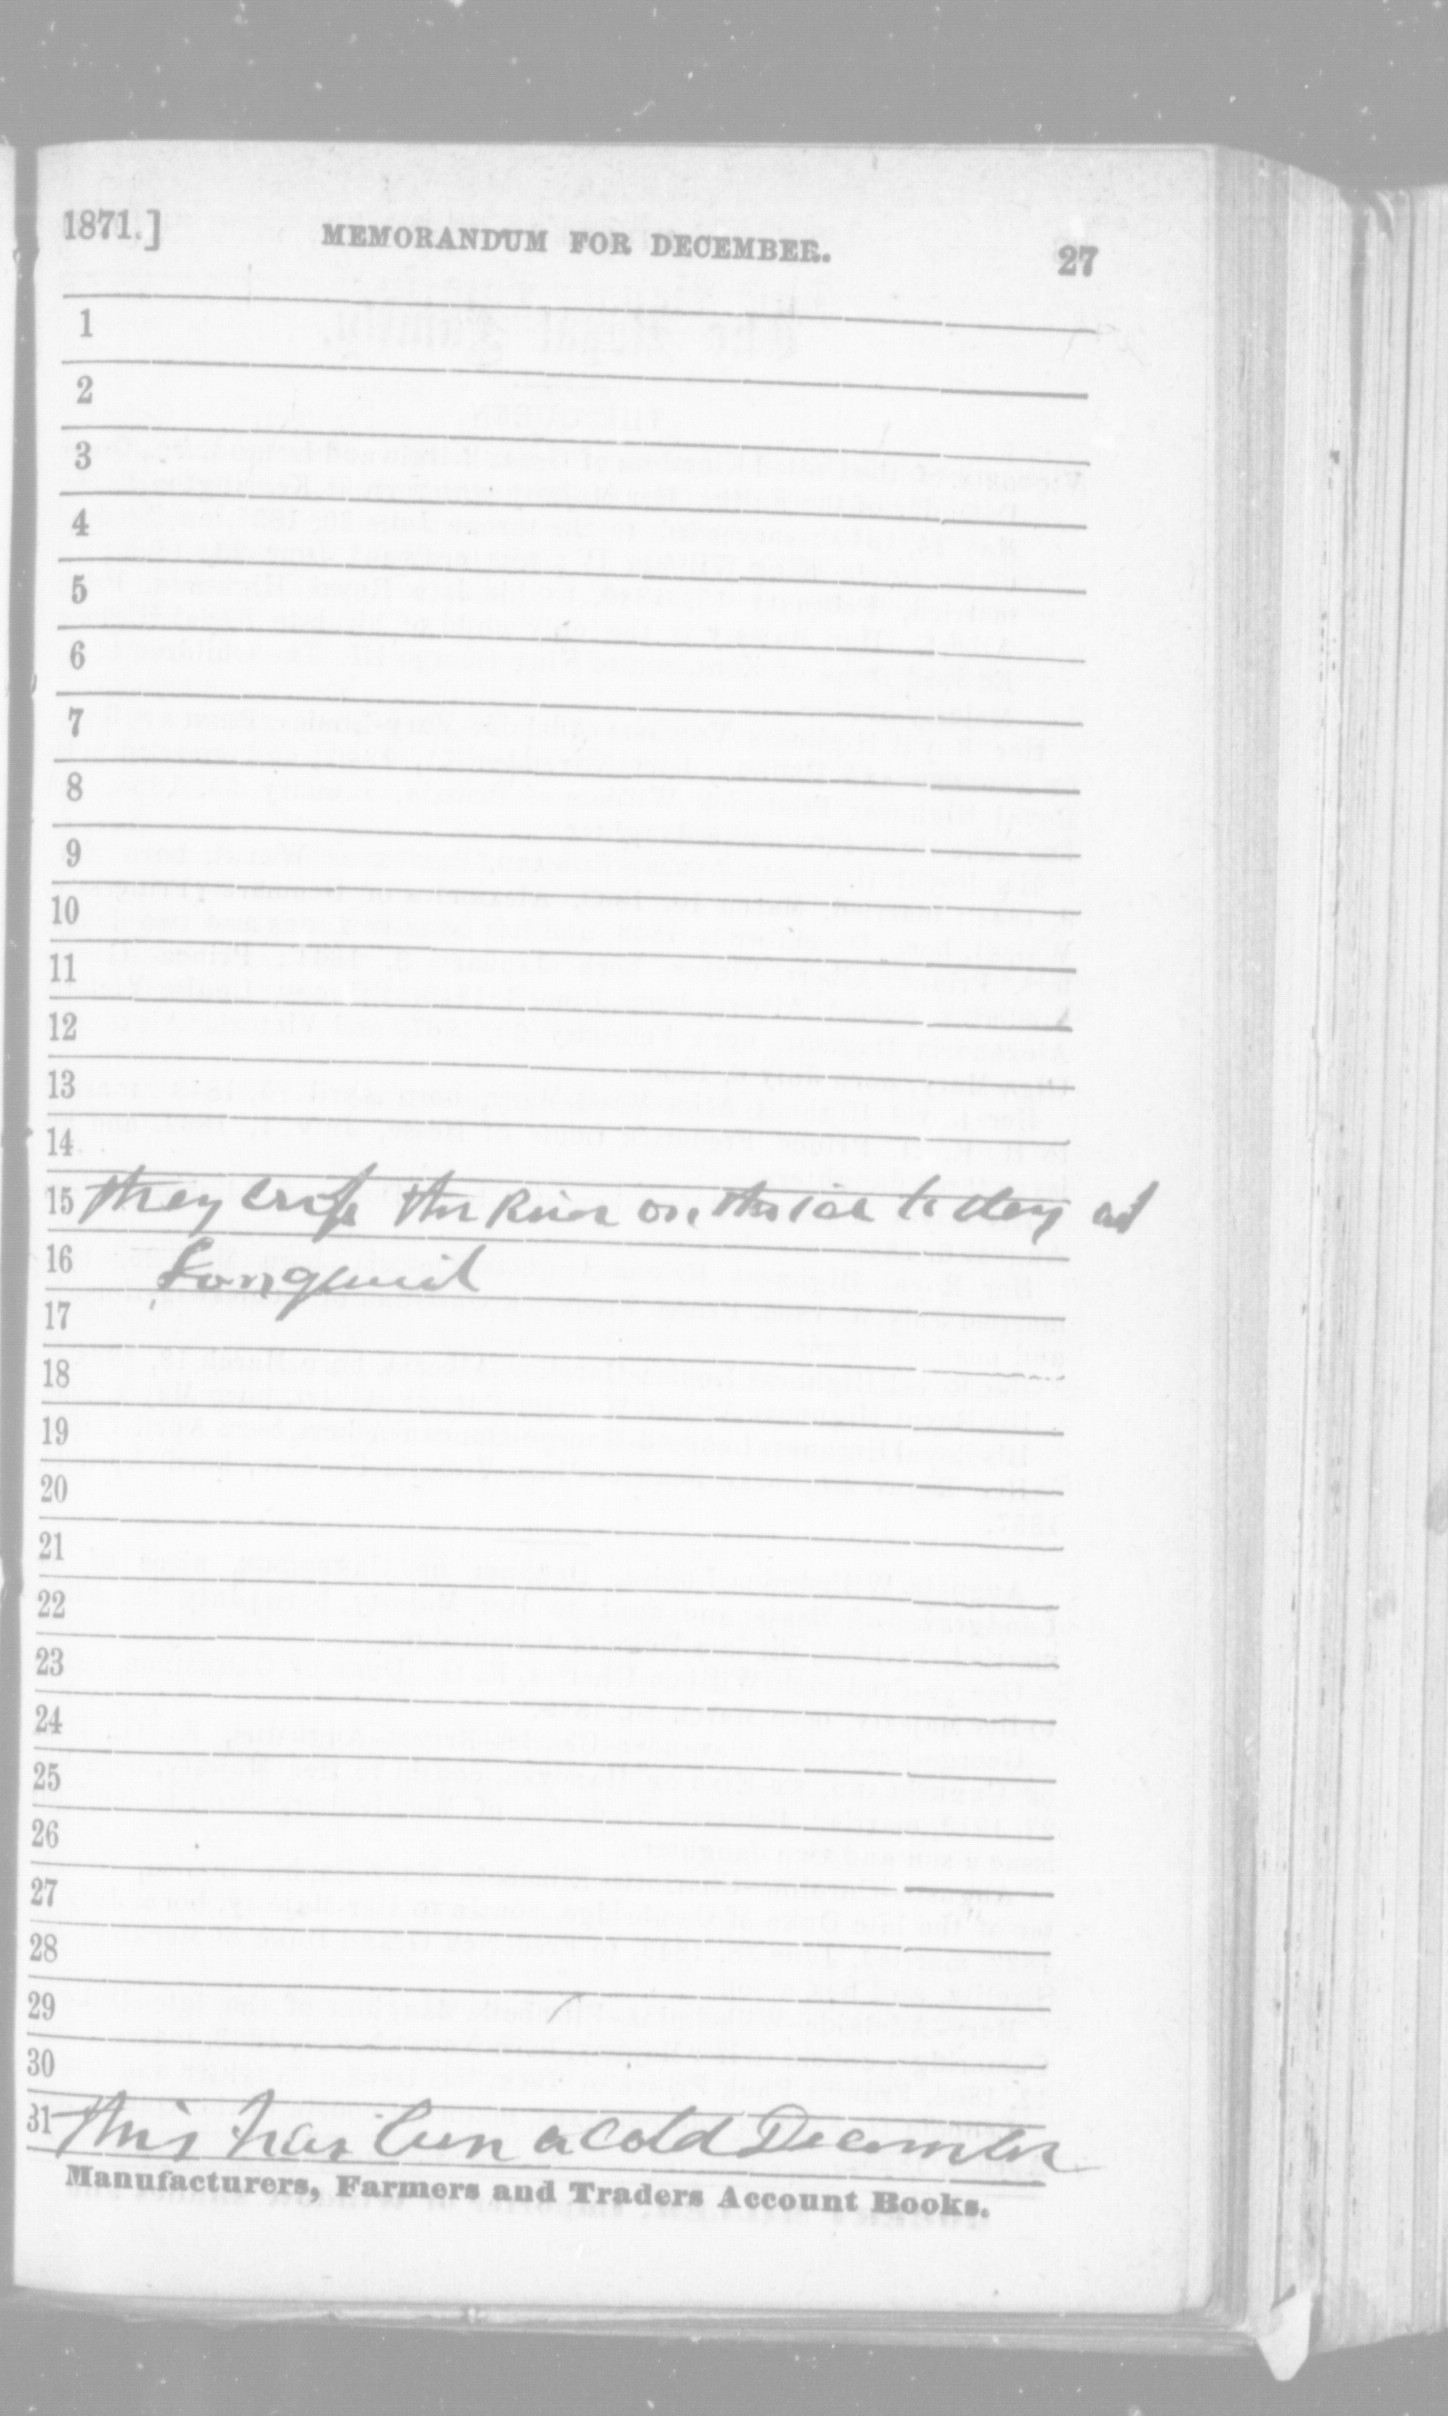 1871.] MEMORANDUM FOR DECEMBER. 27
1
2
3
4
5
6
7
8
9
10
11
12
13
14
15 they cross the River on the ice to day at
16 Longueuil
17
18
19
20
21
22
23
24
25
26
27
28
29
30
31 this has been a cold December
Manufacturers, Farmers and Traders Account Books.